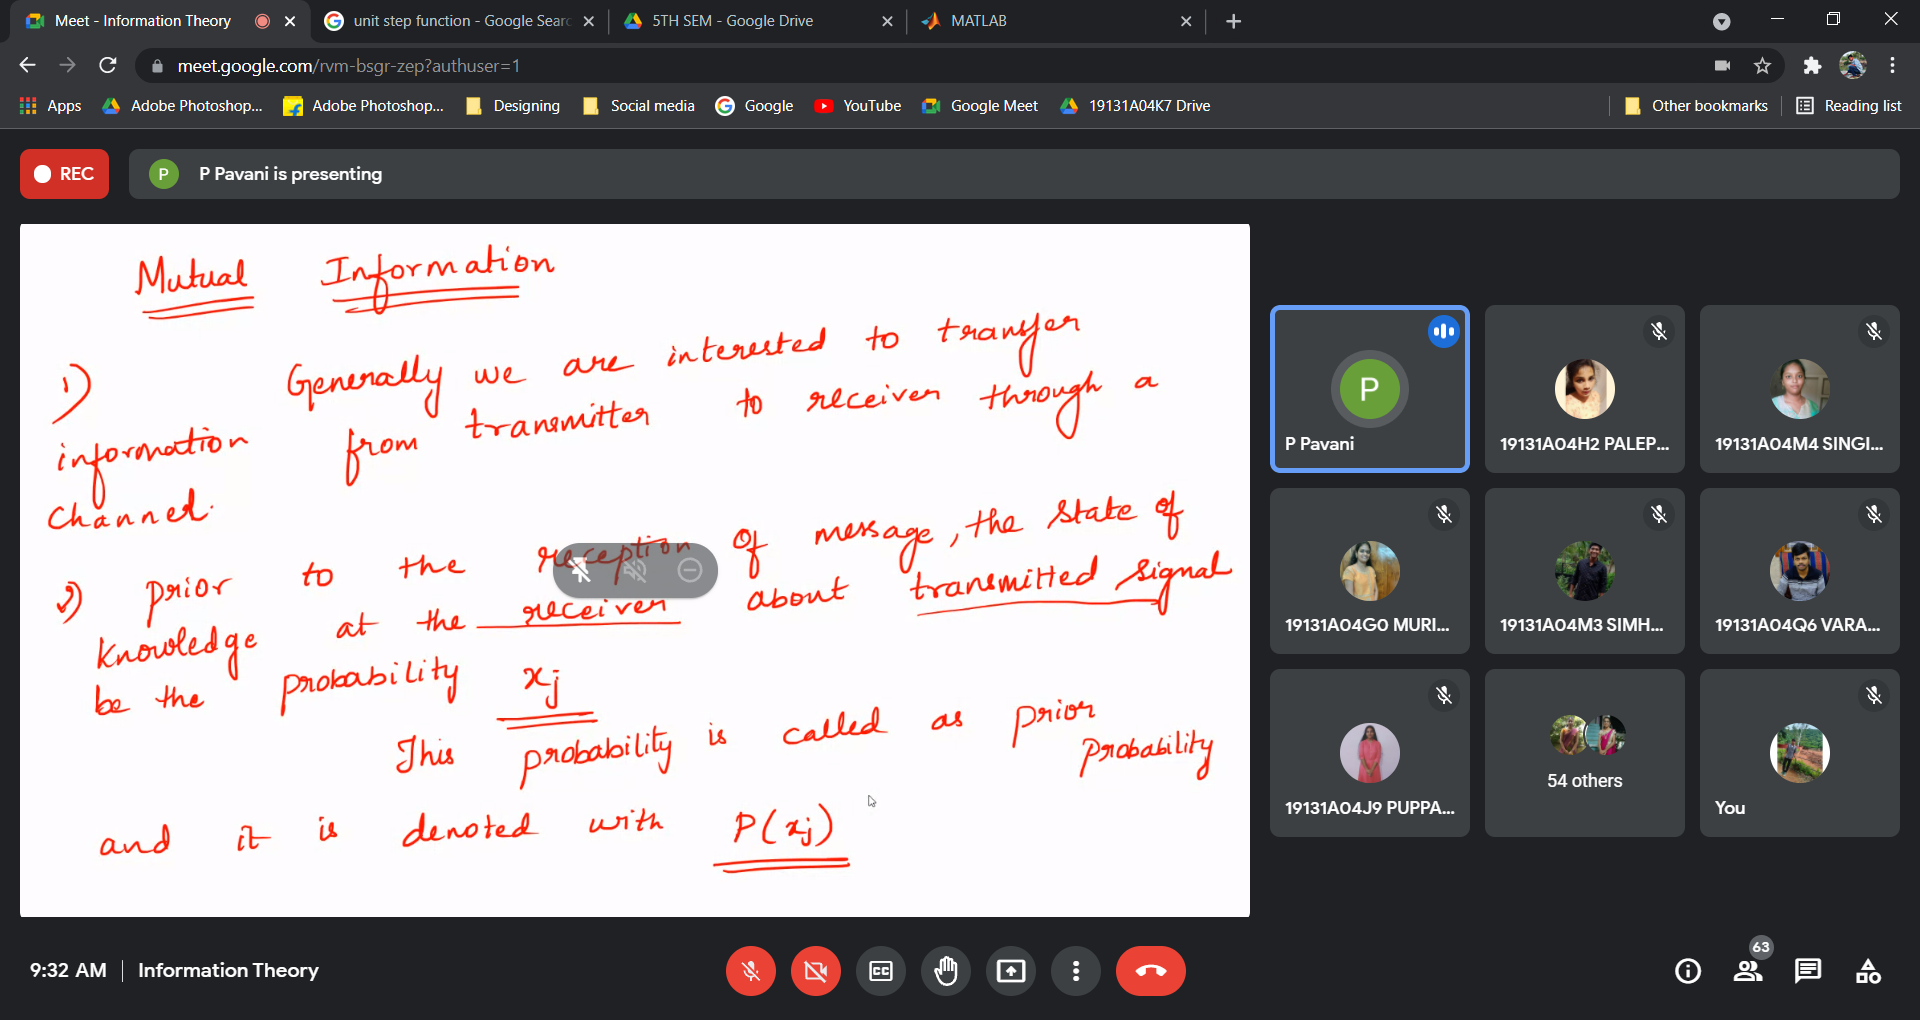 Meet - Information Theory
unit step function - Google Searc
5TH SEM - Google Drive
MATLAB
meet.google.com/rvm-bsgr-zep?authuser=1
Apps
Adobe Photoshop...
Adobe Photoshop...
Designing
Social media
Google
YouTube
Google Meet
19131A04K7 Drive
Other bookmarks
Reading list
REC
P
P Pavani is presenting
Mutual Information
1) Generally we are interested to transfer
information from transmitter to receiver through a
channel.
2) prior to the reception of message, the state of
knowledge at the receiver about transmitted signal
be the probability xj
This probability is called as prior
probability
and it is denoted with P(xj)
P
P Pavani
19131A04H2 PALEP...
19131A04M4 SINGI...
19131A04G0 MURI...
19131A04M3 SIMH...
19131A04Q6 VARA...
19131A04J9 PUPPA...
54 others
You
9:32 AM | Information Theory
CC
63